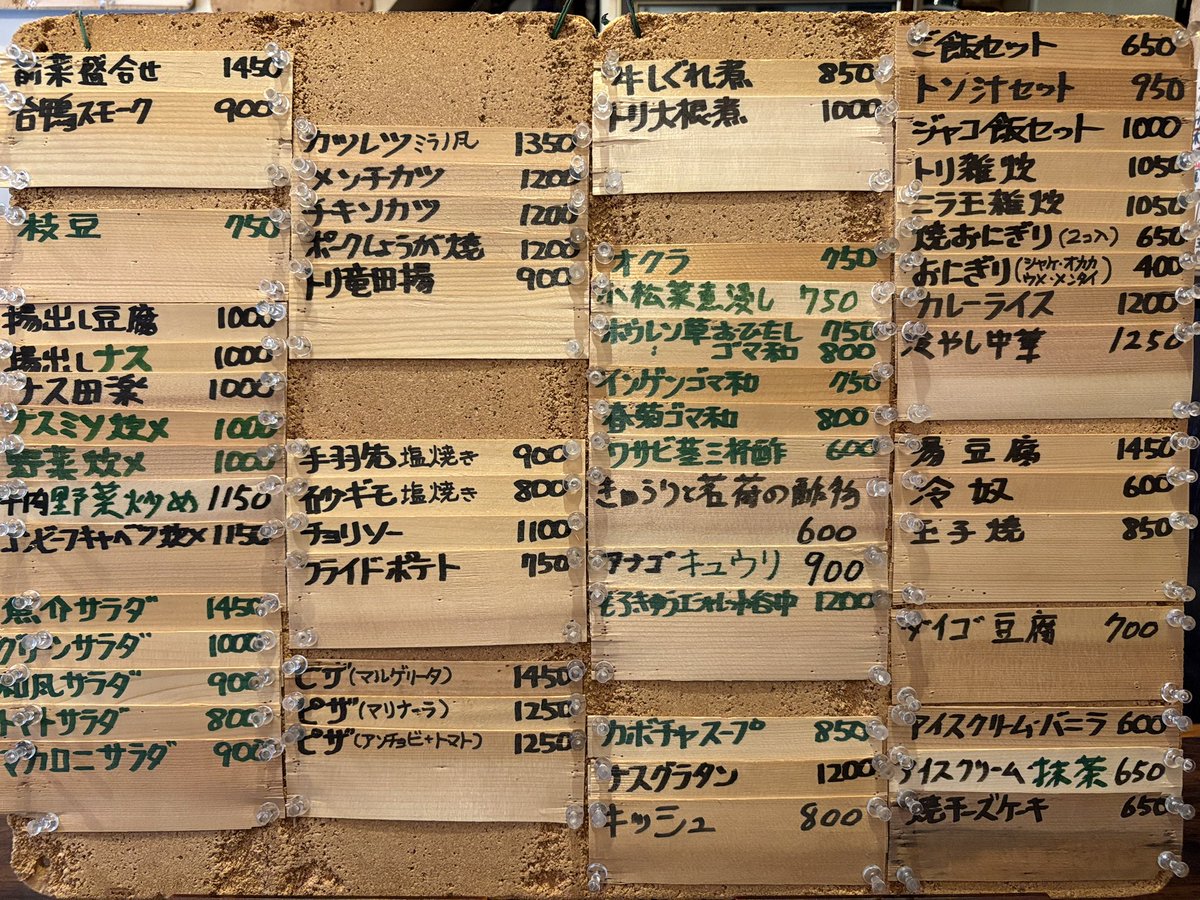 前菜盛合せ 1450
合鴨スモーク 900
枝豆 750
揚出し豆腐 1000
揚出しナス 1000
ナス田楽 1000
ナスミソ炒メ 1000
野菜炒メ 1000
牛肉野菜炒め 1150
コンビーフキャベツ炒メ 1150
魚介サラダ 1450
グリーンサラダ 1000
和風サラダ 900
トマトサラダ 800
マカロニサラダ 900
カツレツミラノ風 1350
メンチカツ 1200
チキンカツ 1200
ポークしょうが焼 1200
トリ竜田揚 900
手羽先塩焼き 900
砂ギモ塩焼き 800
チョリソー 1100
フライドポテト 750
ピザ(マルゲリータ) 1450
ピザ(マリナーラ) 1250
ピザ(アンチョビ+トマト) 1250
牛しぐれ煮 850
トリ大根煮 1000
オクラ 750
小松菜煮浸し 750
ホウレン草おひたし 750
〃 ゴマ和 800
インゲンゴマ和 750
春菊ゴマ和 800
ワサビ茎三杯酢 600
きゅうりと茗荷の酢物
600
アナゴキュウリ 900
1200
カボチャスープ 850
ナスグラタン 1200
キッシュ 800
ご飯セット 650
トン汁セット 950
ジャコ飯セット 1000
トリ雑炊 1050
ニラ玉雑炊 1050
焼おにぎり(2コ入) 650
おにぎり(シャケ・オカカ
ウメ・メンタイ) 400
カレーライス 1200
冷やし中華 1250
湯豆腐 1450
冷奴 600
玉子焼 850
ダイゴ豆腐 700
アイスクリーム・バニラ 600
アイスクリーム抹茶 650
焼チーズケーキ 650